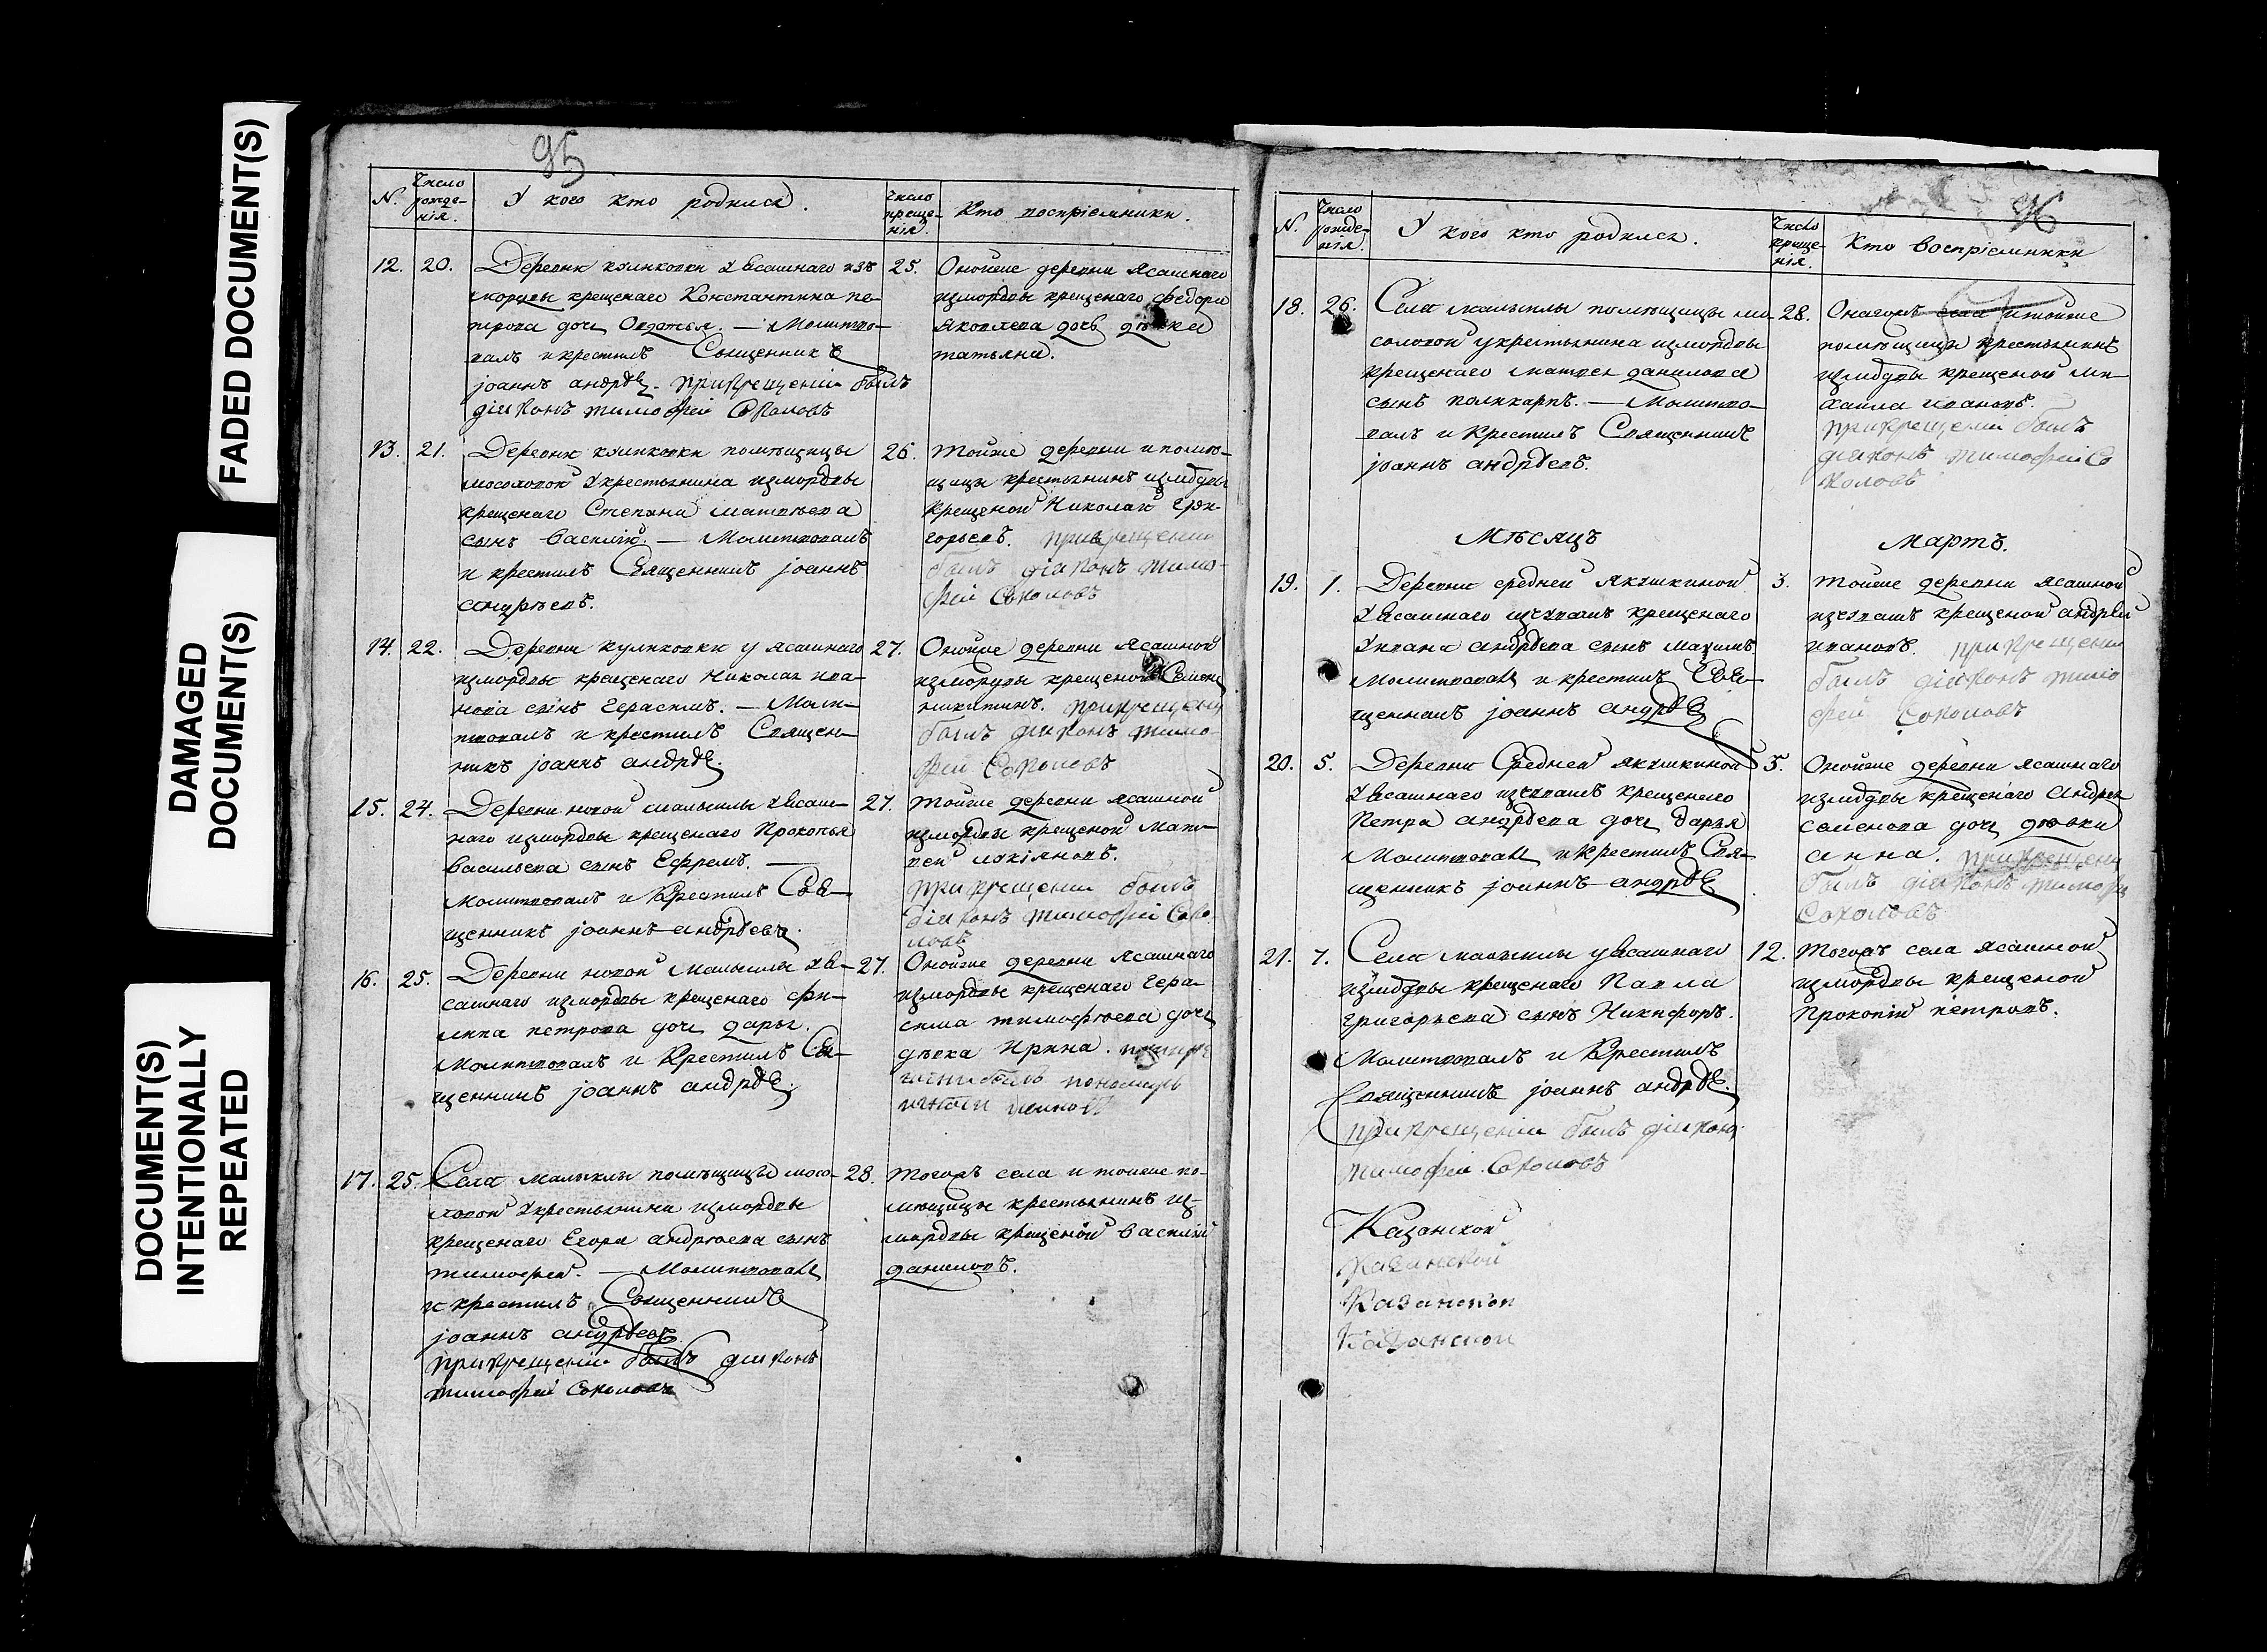 FADED DOCUMENT(S)
DAMAGED
DOCUMENT(S)
DOCUMENT(S)
INTENTIONALLY
REPEATED
95
N.
Число
рожде-
нія.
У кого кто родился.
Число
креще-
нія.
Кто воспріемники.
12. 20.
Деревни куликовки У ясашнаго изъ
мордвы крещенаго Константина пе-
трова дочь Овдотья. — Молитво-
валъ и крестилъ Священникъ
іоаннъ андрѣе. При крещеніи былъ
діяконъ тимофей Соколовъ
25.
Оной же деревни ясашнаго
измордвы крещенаго федора
яковлева дочь девка
татьяна.
13. 21.
Деревни куликовки помѣщицы
мосоловой Украстьянина измордвы
крещенаго Степана матвѣева
сынъ василій. — Молитвовалъ
и крестилъ Священникъ іоаннъ
андрѣевъ.
26.
Той же деревни и помѣ-
щицы крестьянинъ измордвы
крещеной Николай Гри-
горьевъ. при крещении
былъ діяконъ тимо-
фей Соколовъ
14. 22.
Деревни куликовки у ясашнаго
измордвы крещенаго Николая ива-
нова сынъ Герасимъ. — Моли-
твовалъ и крестилъ Священ-
никъ іоаннъ андрѣе.
27.
Оной же деревни ясашной
измордвы крещеной Семенъ
никитинъ. при крещении
былъ діяконъ тимо-
фей Соколовъ
15. 24.
Деревни новой малыклы У ясаш-
наго измордвы крещенаго Прокопья
васильева сынъ Ефремъ. —
Молитвовалъ и Крестилъ Свя-
щенникъ іоаннъ андрѣевъ.
27.
Той же деревни ясашной
измордвы крещеной Мат-
вей лукіяновъ.
при крещении былъ
діяконъ тимофей Соко-
ловъ
16. 25.
Деревни новой Малыклы У я-
сашнаго измордвы крещенаго фи-
липа петрова дочь дарья.
Молитвовалъ и Крестилъ Свя-
щенникъ іоаннъ андрѣе.
27.
Оной же деревни ясашнаго
измордвы крещенаго Гера-
сима тимофѣева дочь
дѣвка Ирина.
17. 25.
Села малыклы помѣщицы мосо-
ловой Украстьянина измордвы
крещенаго Егора андрѣева сынъ
тимофей. — Молитвовалъ
и крестилъ Священникъ
іоаннъ андрѣевъ.
при крещеніи былъ діяконъ
тимофей Соколовъ
28.
Тогожъ села и той же по-
мѣщицы крестьянинъ из-
мордвы крещеной василій
даниловъ.
96
N.
Число
рожде-
нія.
У кого кто родился.
Число
креще-
нія.
Кто воспріемники
18. 26.
Села малыклы помѣщицы мо-
соловой у крестьянина измордвы
крещенаго матвея данилова
сынъ поликарпъ. — Молитво-
валъ и Крестилъ Священникъ
іоаннъ андрѣевъ.
28.
Онагожъ села и той же
помѣщицы крестьянинъ
измордвы крещеной ми-
хаила ивановъ.
при крещении былъ
діяконъ тимофей Со
коловъ
Мѣсяцъ Мартъ.
19. 1.
Деревни средней якушкиной
У ясашнаго изчувашъ крещенаго
Ивана андрѣева сынъ максимъ.
Молитвовалъ и крестилъ Свя-
щенникъ іоаннъ андрѣе
3.
Той же деревни ясашной
изчувашъ крещеной андрей
ивановъ. при крещении
былъ діяконъ тимо
фей Соколовъ
20. 5.
Деревни Средней якушкиной
У ясашнаго изчувашъ крещенаго
Петра андрѣева дочь дарья
Молитвовалъ и Крестилъ Свя-
щенникъ іоаннъ андрѣе
5.
Оной же деревни ясашнаго
измордвы крещенаго Андрея
семенова дочь дѣвка
анна. при крещении
былъ діяконъ тимофей
Соколовъ
21. 7.
Села малыклы у ясашнаго
измордвы крещенаго Павла
григорьева сынъ Никифоръ.
Молитвовалъ и Крестилъ
Священникъ іоаннъ андрѣе.
при крещении былъ діяконъ
тимофей Соколовъ
12.
Тогожъ села ясашной
измордвы крещеной
Прокопій петровъ.
Казанской
Казанской
Казанской
Казанской